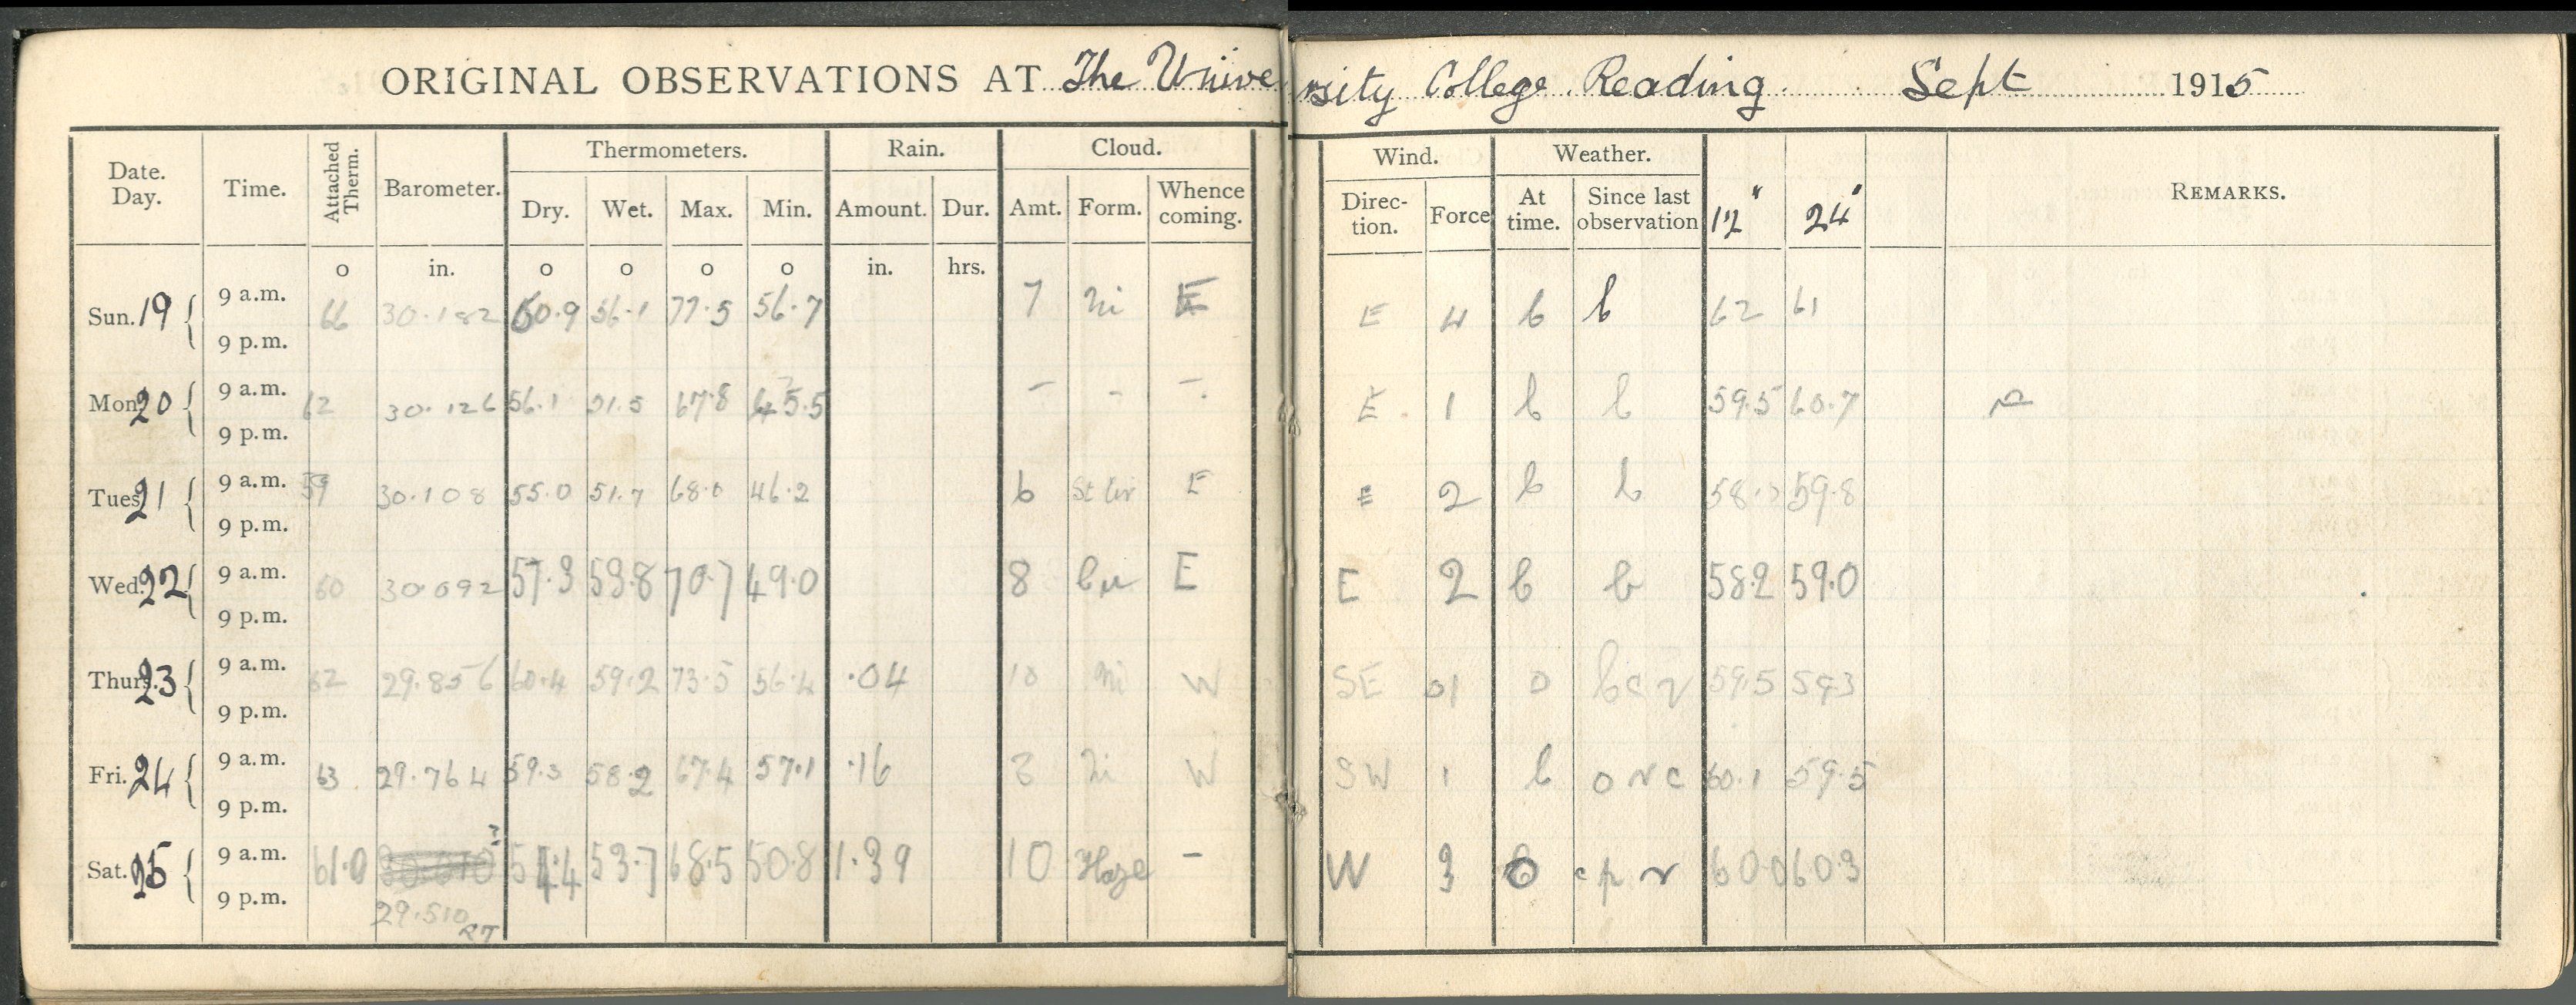 ORIGINAL OBSERVATIONS AT The University College Reading Sept 1915
Date. Day. Time. Attached Therm. Barometer. Thermometers. Dry. Wet. Max. Min. Rain. Amount. Dur. Cloud. Amt. Form. Whence coming. Wind. Direction. Force Weather. At time. Since last observation 12" 24" REMARKS.
o in. o o o o in. hrs.
Sun. 19 { 9 a.m. 66 30.182 60.9 56.1 77.5 56.7 7 Ni E E 4 b b 62 61
9 p.m.
Mon 20 { 9 a.m. 62 30.126 56.1 51.5 67.8 45.5 – – – E. 1 b b 59.5 60.7
9 p.m.
Tues 21 { 9 a.m. 59 30.108 55.0 51.7 68.0 46.2 6 St Cir E E 2 b b 59.8
9 p.m.
Wed. 22 { 9 a.m. 60 30.092 57.3 53.8 70.7 49.0 8 Cu E E 2 b b 58.2 59.0
9 p.m.
Thurs. 23 { 9 a.m. 62 29.856 60.4 59.2 73.5 56.4 .04 10 Ni W SE 01 o bcr 59.5 59.3
9 p.m.
Fri. 24 { 9 a.m. 63 29.764 59.3 58.2 67.4 57.1 .16 Ni W SW 1 b orc 60.1 59.5
9 p.m.
Sat. 25 { 9 a.m. 61.0 ? 54.4 53.7 68.5 50.8 1.39 10 Haze – W 3 o cpr 60.0 60.3
9 p.m.
29.510
RT